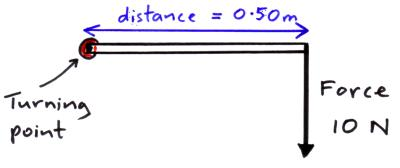 distance = 0.50m
Turning
point
Force
10 N